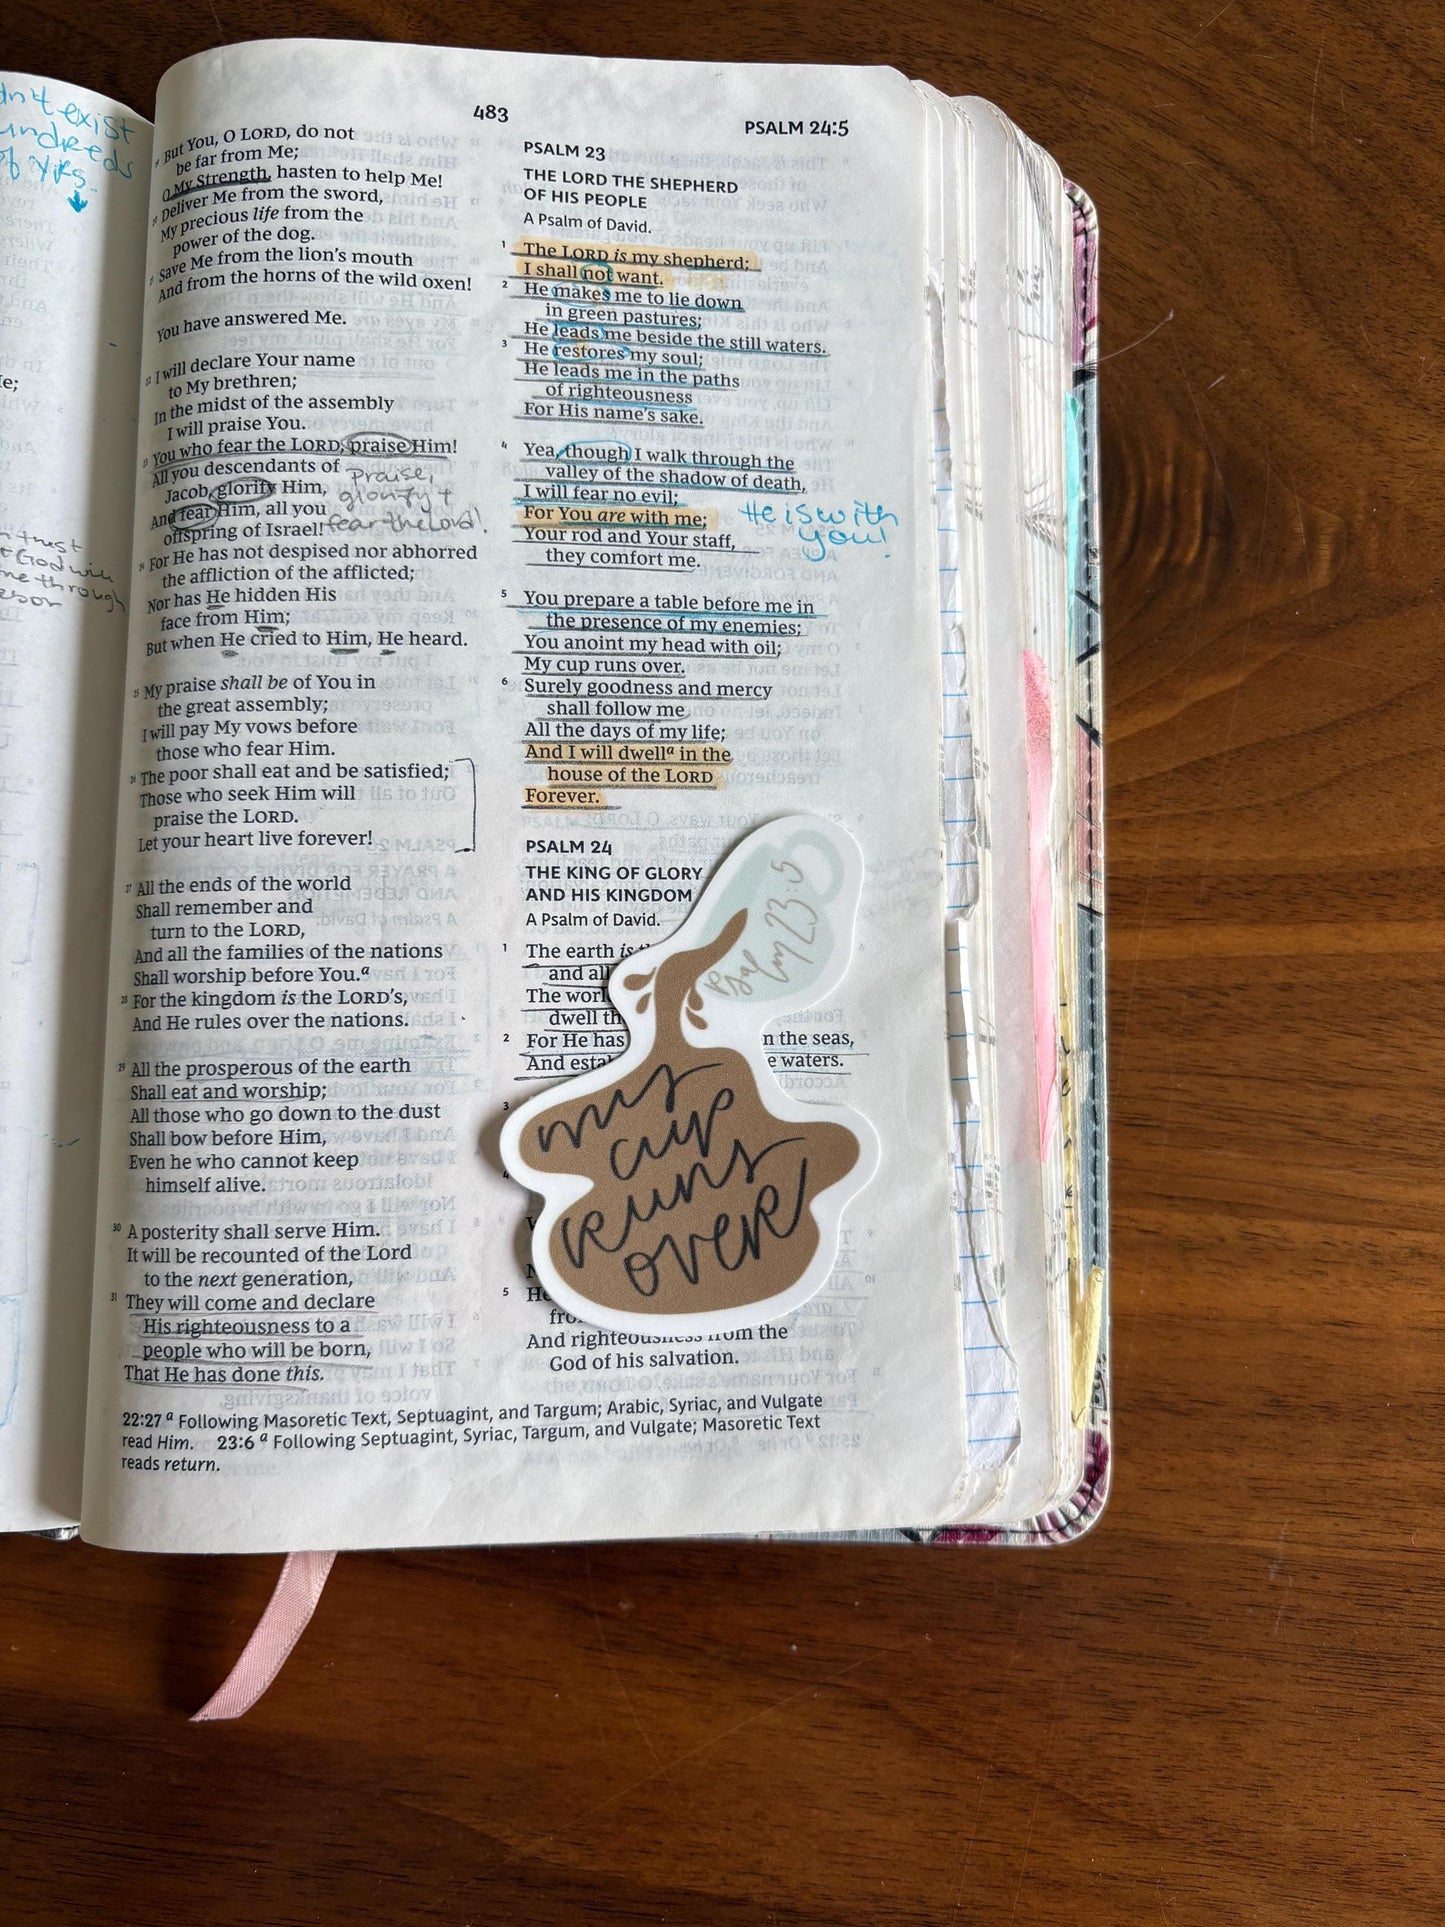 dn't exist
undreds
of yrs.
trust
God will
me through
483
PSALM 24:5
19 But You, O LORD, do not
be far from Me;
O My Strength, hasten to help Me!
20 Deliver Me from the sword,
My precious life from the
power of the dog.
21 Save Me from the lion's mouth
And from the horns of the wild oxen!
You have answered Me.
22 I will declare Your name
to My brethren;
In the midst of the assembly
I will praise You.
23 You who fear the LORD, praise Him!
All you descendants of
Jacob, glorify Him,
And fear Him, all you
offspring of Israel!
praise,
glorify +
fear the Lord!
24 For He has not despised nor abhorred
the affliction of the afflicted;
Nor has He hidden His
face from Him;
But when He cried to Him, He heard.
25 My praise shall be of You in
the great assembly;
I will pay My vows before
those who fear Him.
26 The poor shall eat and be satisfied;
Those who seek Him will
praise the LORD.
Let your heart live forever!
27 All the ends of the world
Shall remember and
turn to the LORD,
And all the families of the nations
Shall worship before You.a
28 For the kingdom is the LORD's,
And He rules over the nations.
29 All the prosperous of the earth
Shall eat and worship;
All those who go down to the dust
Shall bow before Him,
Even he who cannot keep
himself alive.
30 A posterity shall serve Him.
It will be recounted of the Lord
to the next generation,
31 They will come and declare
His righteousness to a
people who will be born,
That He has done this.
PSALM 23
THE LORD THE SHEPHERD
OF HIS PEOPLE
A Psalm of David.
1 The LORD is my shepherd;
I shall not want.
2 He makes me to lie down
in green pastures;
He leads me beside the still waters.
3 He restores my soul;
He leads me in the paths
of righteousness
For His name's sake.
4 Yea, though I walk through the
valley of the shadow of death,
I will fear no evil;
For You are with me;
Your rod and Your staff,
they comfort me.
He is with
you!
5 You prepare a table before me in
the presence of my enemies;
You anoint my head with oil;
My cup runs over.
6 Surely goodness and mercy
shall follow me
All the days of my life;
And I will dwella in the
house of the LORD
Forever.
PSALM 24
THE KING OF GLORY
AND HIS KINGDOM
A Psalm of David.
1 The earth is
and all
The
dwell
2 For He has n the seas,
And waters.
3
4
5 He
And righteousness from the
God of his salvation.
Psalm 23:5
my
cup
runs
over
22:27 a Following Masoretic Text, Septuagint, and Targum; Arabic, Syriac, and Vulgate
read Him. 23:6 a Following Septuagint, Syriac, Targum, and Vulgate; Masoretic Text
reads return.